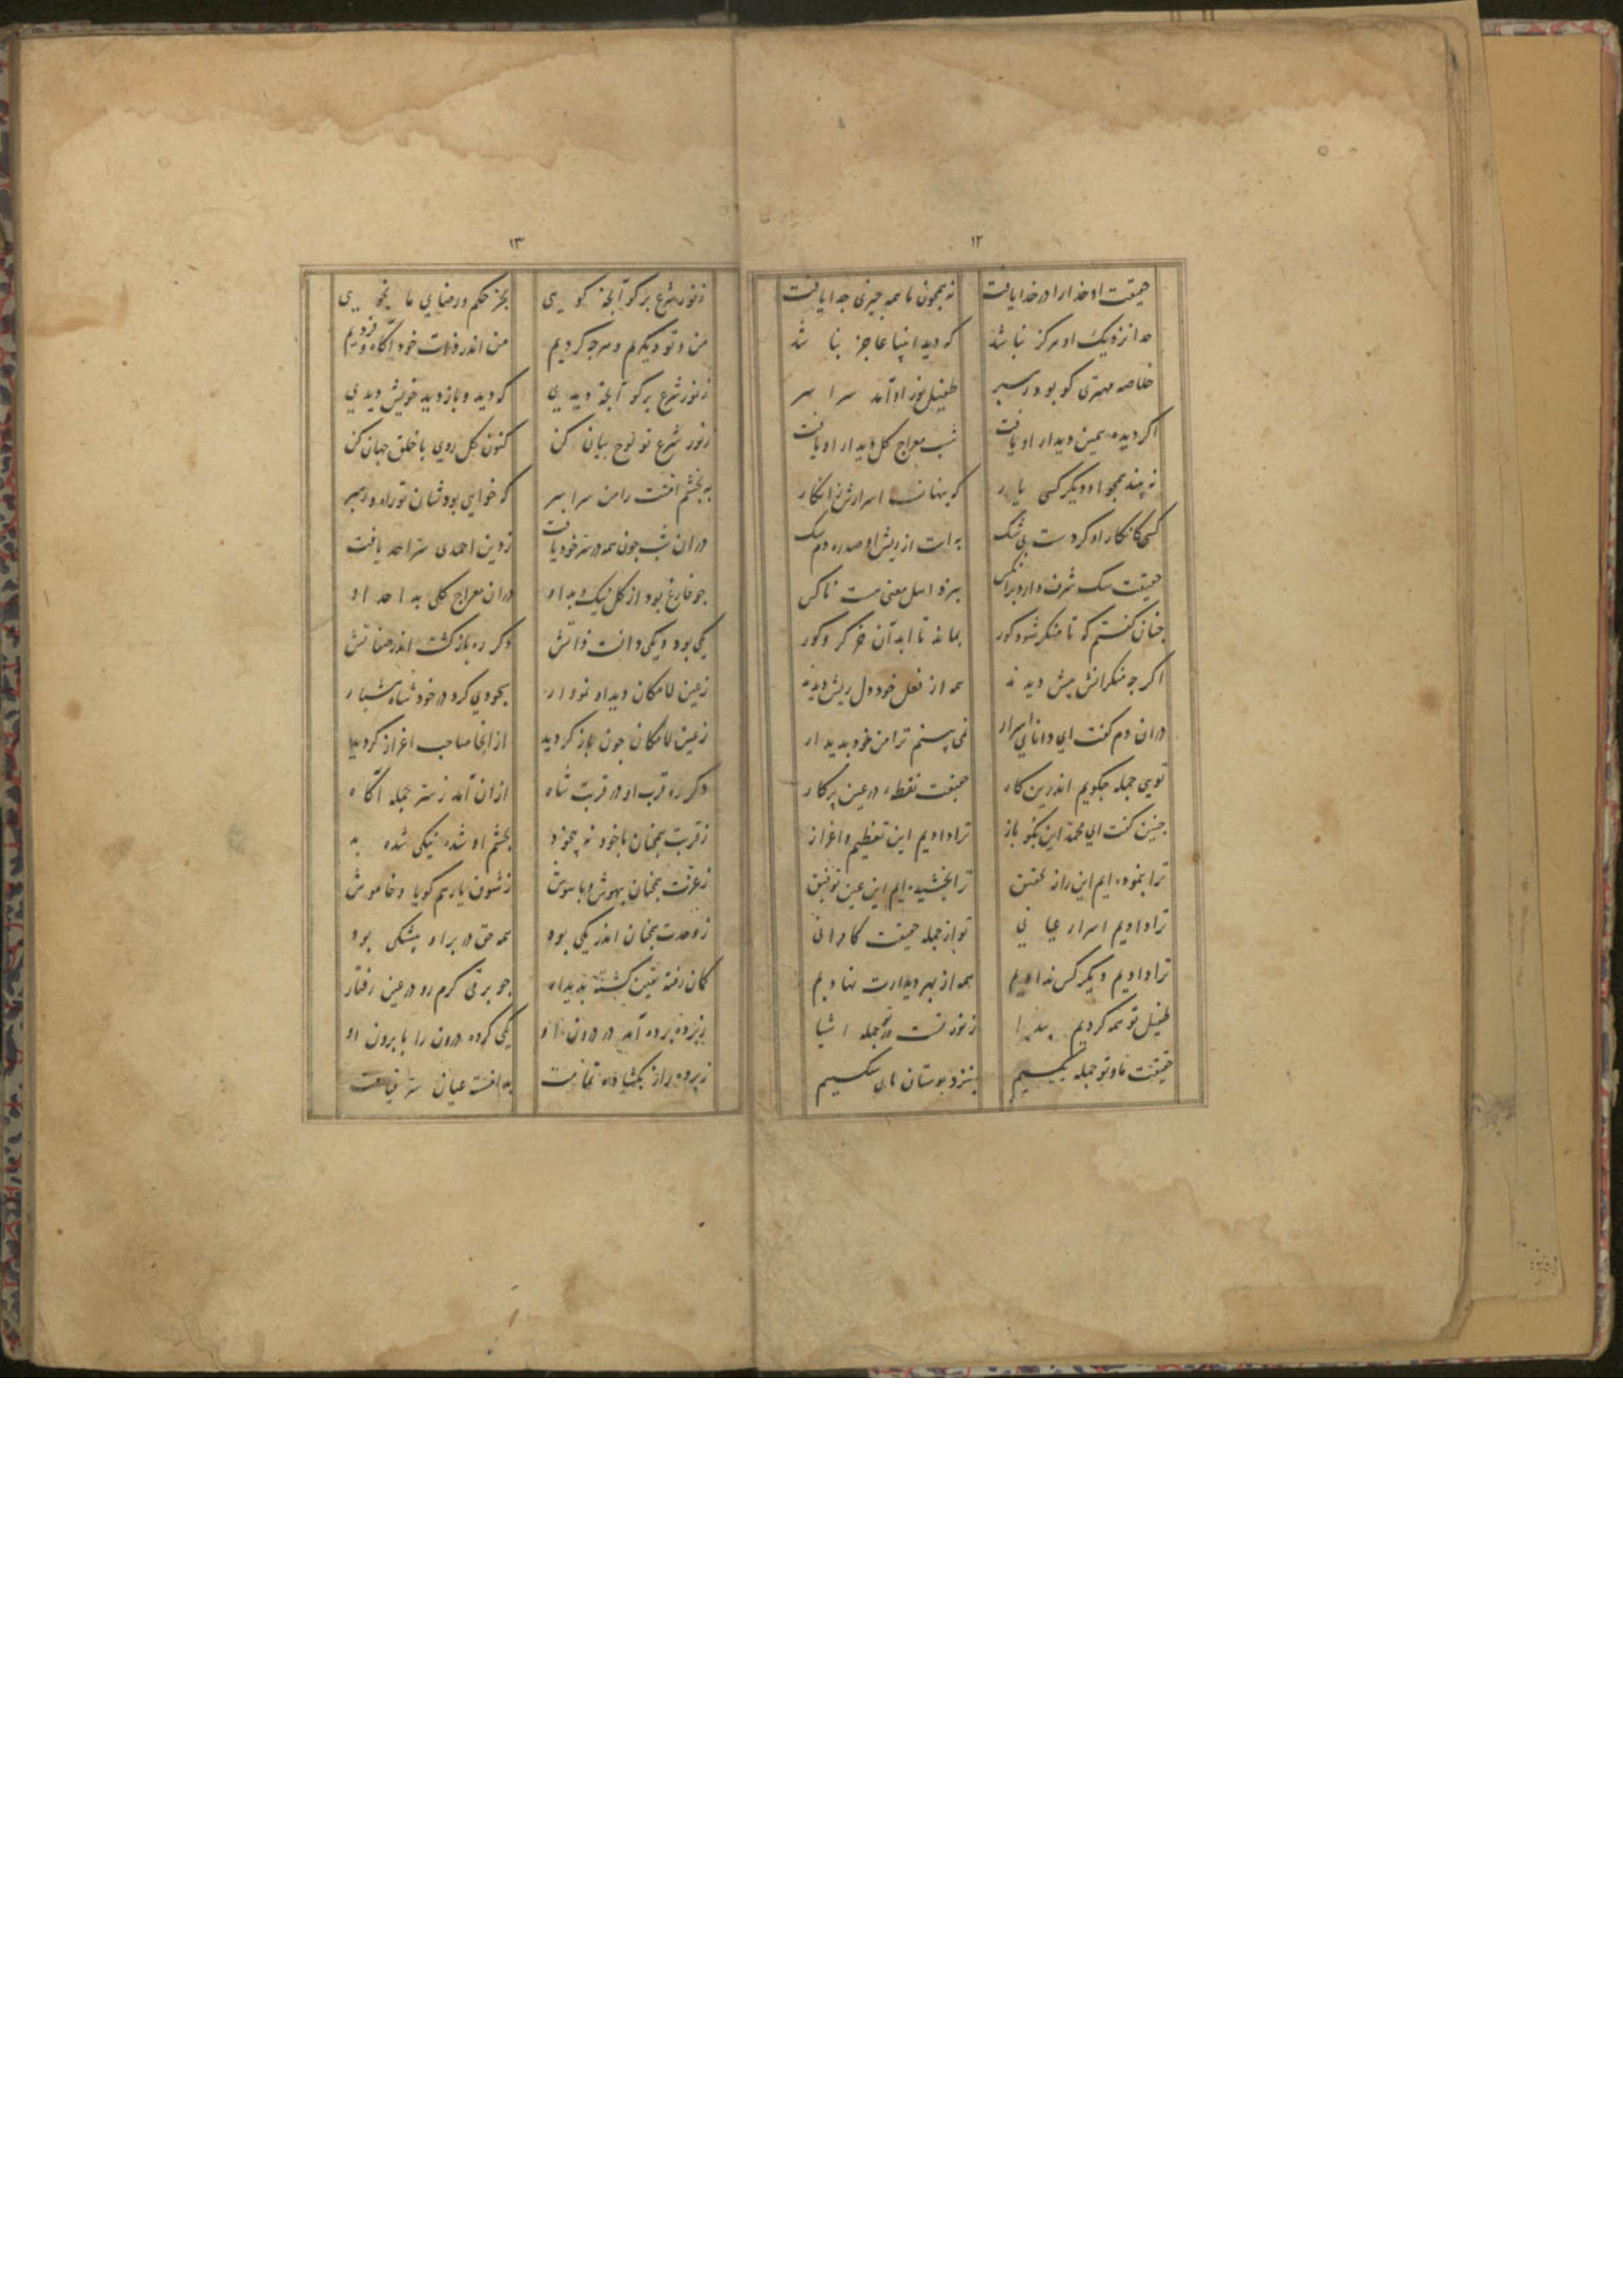 ۱۲
حقیقت او خدا را در خدا یافت نه همچون ما همه چیزی جدا یافت
جدا نزدیک او هرگز نباشد که دید انبیا عاجز نباشد
خلاصه مهتری کو بود رهبر طفیل نور او آمد سراسر
اگر دیده یقین دیدار او یافت شب معراج کل دیدار او یافت
نه بیند همچو او دیگر کسی یار که پنهانست اسرارش ز انکار
کسی کانکار او کردست بی شک به است از ریش او صد ره دم سک
حقیقت سک شرف دارد بر آنکس بنزد اهل معنی هست ناکس
چنان کفتم که تا منکر شود کور بماند تا ابد آن خر کر و کور
اکر چه منکرانش پیش دیدند همه از فعل خود دل ریش دیدند
در ان دم کفت ای دانای اسرار نمی بینم ترا من خود پدیدار
تویی جمله چکویم اندرین کار حقیقت نقطه در عین پرکار
چنین کفت ای محمد این بکو باز ترا دادیم این تعظیم و اعزاز
ترا بنموده ایم این راز تحقیق ترا بخشیده ایم این عین توفیق
ترا دادیم اسرار عیانی تو از جمله حقیقت کامرانی
ترا دادیم دیکر کس ندادیم همه از بهر دیدارت نهادیم
طفیل تو همه کردیم پیدا ز نور تست در جمله اشیا
حقیقت ما و تو جمله یکیسیم بنزد دوستان مابیسکیسیم
۱۳
ز نور شرع بر کو آنچه کویی بجز حکم و رضای ما نجویی
من و تو دیکریم و هرچه کردیم من اندر ذات خود آکاه فردیم
ز نور شرع بر کو آنچه دیدی که دید و باز دید خویش دیدی
ز نور شرع تو لوح بیان کن کنون کل روی با خلق جهان کن
به بخشم امتت را من سراسر که خواهی بود شان تو راه و رهبر
در ان شب چون همه در سر خود یافت ز دین احمدی سر احد یافت
چو فارغ بود از کل نیک و بد او در ان معراج کلی بد احد او
یکی بود و یکی دانست ذاتش دکر ره باز کشت اندر صفاتش
ز عین لامکان دیدار نمودار بخودی کرد در خود شاه هشیار
ز عین لامکان چون باز کردید از انجا صاحب اعزاز کردید
دکر ره قرب او در قربت شاه از ان آمد ز سر جمله آکاه
ز قربت همچنان با خود نه بیخود بچشم او شده نیکی شده بد
ز عزت همچنان بیهوش و باهوش ز شوق یار هم کویا و خاموش
ز وحدت همچنان اندر یکی بود همه حق در بر او بیشکی بود
کمان رفته یقین کشته پدیدار چو برقی کرم رو در عین رفتار
پرده آمد در درون او یکی کرده درون را با برون او
ز پرده راز بکشاده تمامت بدانسته عیان سر قیامت